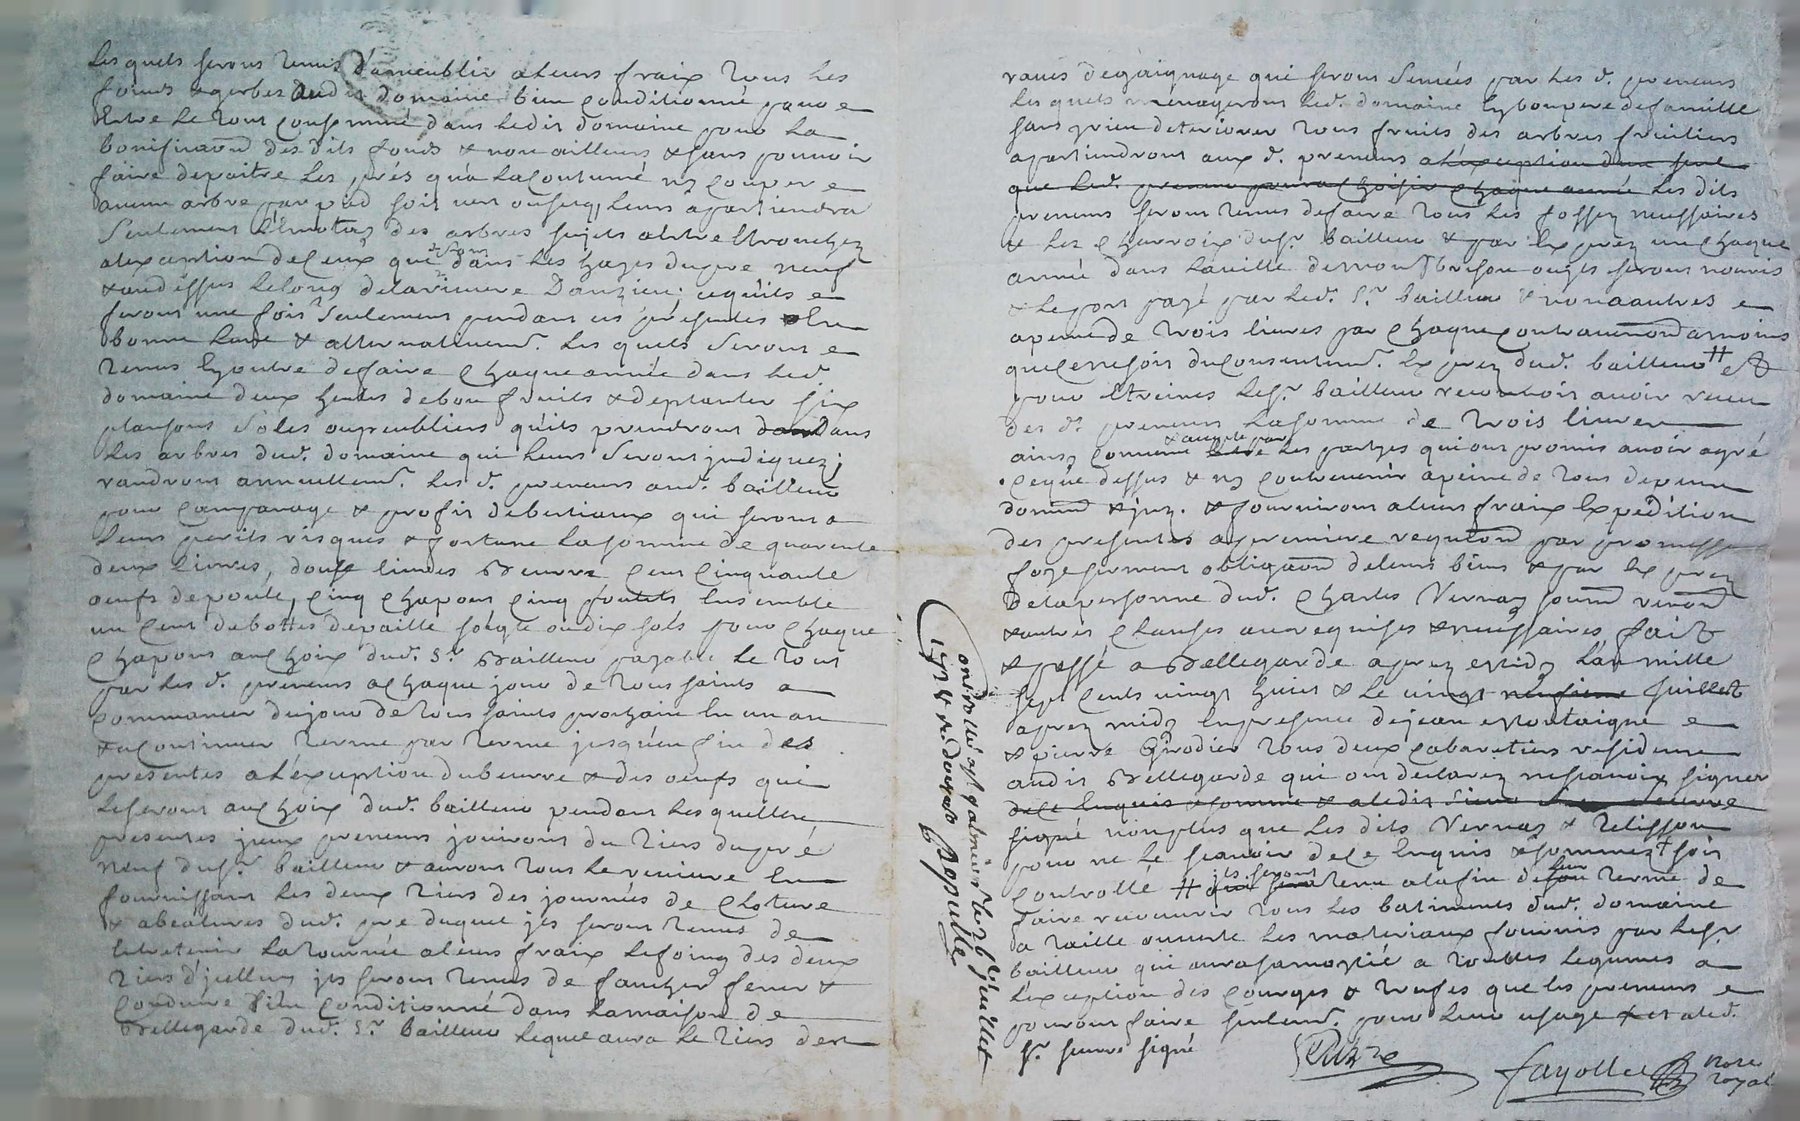 Lesquels seront tenus d'ameublir a leurs fraix tous les
foins & gerbes dudit domaine bien conditionné pour e
Estre le tout consommé dans ledit domaine pour la
bonification des dits fonds & non ailleurs & sans pouvoir
faire depaitre les prés qu'a la coutume ny couper e
aucun arbre par pied soit vert ou secq, leurs apartiendra
seulement l'emotag des arbres sujets a estre etronchez
a lexception de ceux qui sont dans les hayes du pré neuf
& au dessus le long de la riviere Danzieu; ce quils e
feront une fois seulement pendant ces presentes En
bonne lune & alternativemt. Lesquels seront e
tenus En outre de faire chaque année dans led.
domaine deux hentes de bon fruits & de planter six
plançons soles ou peubliers qu'ils prendront dans
les arbres dud. domaine qui leurs seront indiquez;
randront annuellemt. les d. preneurs aud. bailleur
pour campanage & profit de bestiaux qui seront a
leurs perils risques & fortune la somme de quarente
deux livres, douse livres Beurre cent cinquante
oeufs de poule, cinq chapons cinq poulets Ensemble
un cent de bottes de paille soigle ou dix sols pour chaque
chapons au choix dud. Sr. Bailleur payable le tout
par les d. preneurs a chaque jour de tous saints a
commancer du jour de tous saints prochain En un an
& a continuer terme par terme jusqu'en fin des
presentes a l'exception du beurre & des oeufs qui
le seront au choix dud. bailleur pendant lesquelles
presentes iceux preneurs jouiront du tiers du pré
neuf dud Sr. bailleur & auront tous le reviure En
fournissant les deux tiers des journées de cloture
& abeatures dud. pré duquel ils seront tenus de
Entretenir la tournée a leurs fraix le foing des deux
tiers d'icelluy ils seront tenus de faucher fener &
conduire bien conditionné dans la maison de
Bellegarde dud. Sr. bailleur lequel aura le tiers des
raves de gaignage qui seront semées par les d. preneurs
Lesquels menageront led. domaine En bon pere de famille
sans y rien deteriorer tous fruits des arbres fruitiers
apartiendront aux d. preneurs a l'exception d'un seul
que led. preneur pourra choisir chaque année Les dits
preneurs seront tenus de faire tous les fossez necessaires
& les charroix dud Sr. bailleur & par Exprez un chaque
année dans la ville de Montbrison ou ils seront nourris
& le port payé par led. Sr. bailleur & non a autres e
a peine de trois livres par chaque contravention a moins
que ce ne soit du consentemt. Exprez dud. bailleur # et
pour Etreines led Sr. bailleur reconnoit avoir receu
des d. preneurs la somme de trois livres
ainsy convenu & accepté par les partyes qui ont promis avoir agré
ce que dessus & ny contrevenir a peine de tous depens
domm & jnz. & fourniront a leurs fraix Expedition
des presentes a premiere requisition par promesse
foy serment obligaon de leurs biens & par Exprez
de la personne dud. Charles Vernay soum renon
& autres clauses aux requises & necessaires, fait
& passé a Bellegarde aprez midy l'an mille
sept cents vingt huict & le vingt neufieme Juillet
aprez midy En presence de jean Montaigne e
& pierre Girodier tous deux cabaretiers residents
audit Bellegarde qui ont declarez ne scavoir signer
de ce Enquis & sommé & a ledit Sieur
signé non plus que les dits Vernay & telisson
pour ne le scavoir de ce Enquis & sommez soit
controllé # ils seront tenu a la fin de leur terme de
faire recouvrir tous les batiments dud. domaine
a taille ouverte les materiaux fournis par led Sr.
bailleur qui aura sa moytié a touttes legumes a
l'exception des courges & trufes que les preneurs e
pourront faire seulemt. pour leur usage & a led.
Sr. signé
fayolle nore
royal
Controllé a St galmier le 26 Juillet
1728 R. douze sols